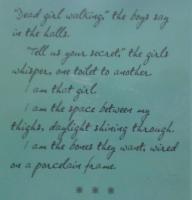 "Dead girl walking," the boys say
in the halls.
"Tell us your secret," the girls
whisper, one toilet to another.
I am that girl.
I am the space between my
thighs, daylight shining through.
I am the bones they want, wired
on a porcelain frame.